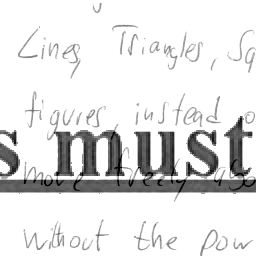 Lines, Triangles, Sq
figures, instead o
s must
move freely abo
without the pow